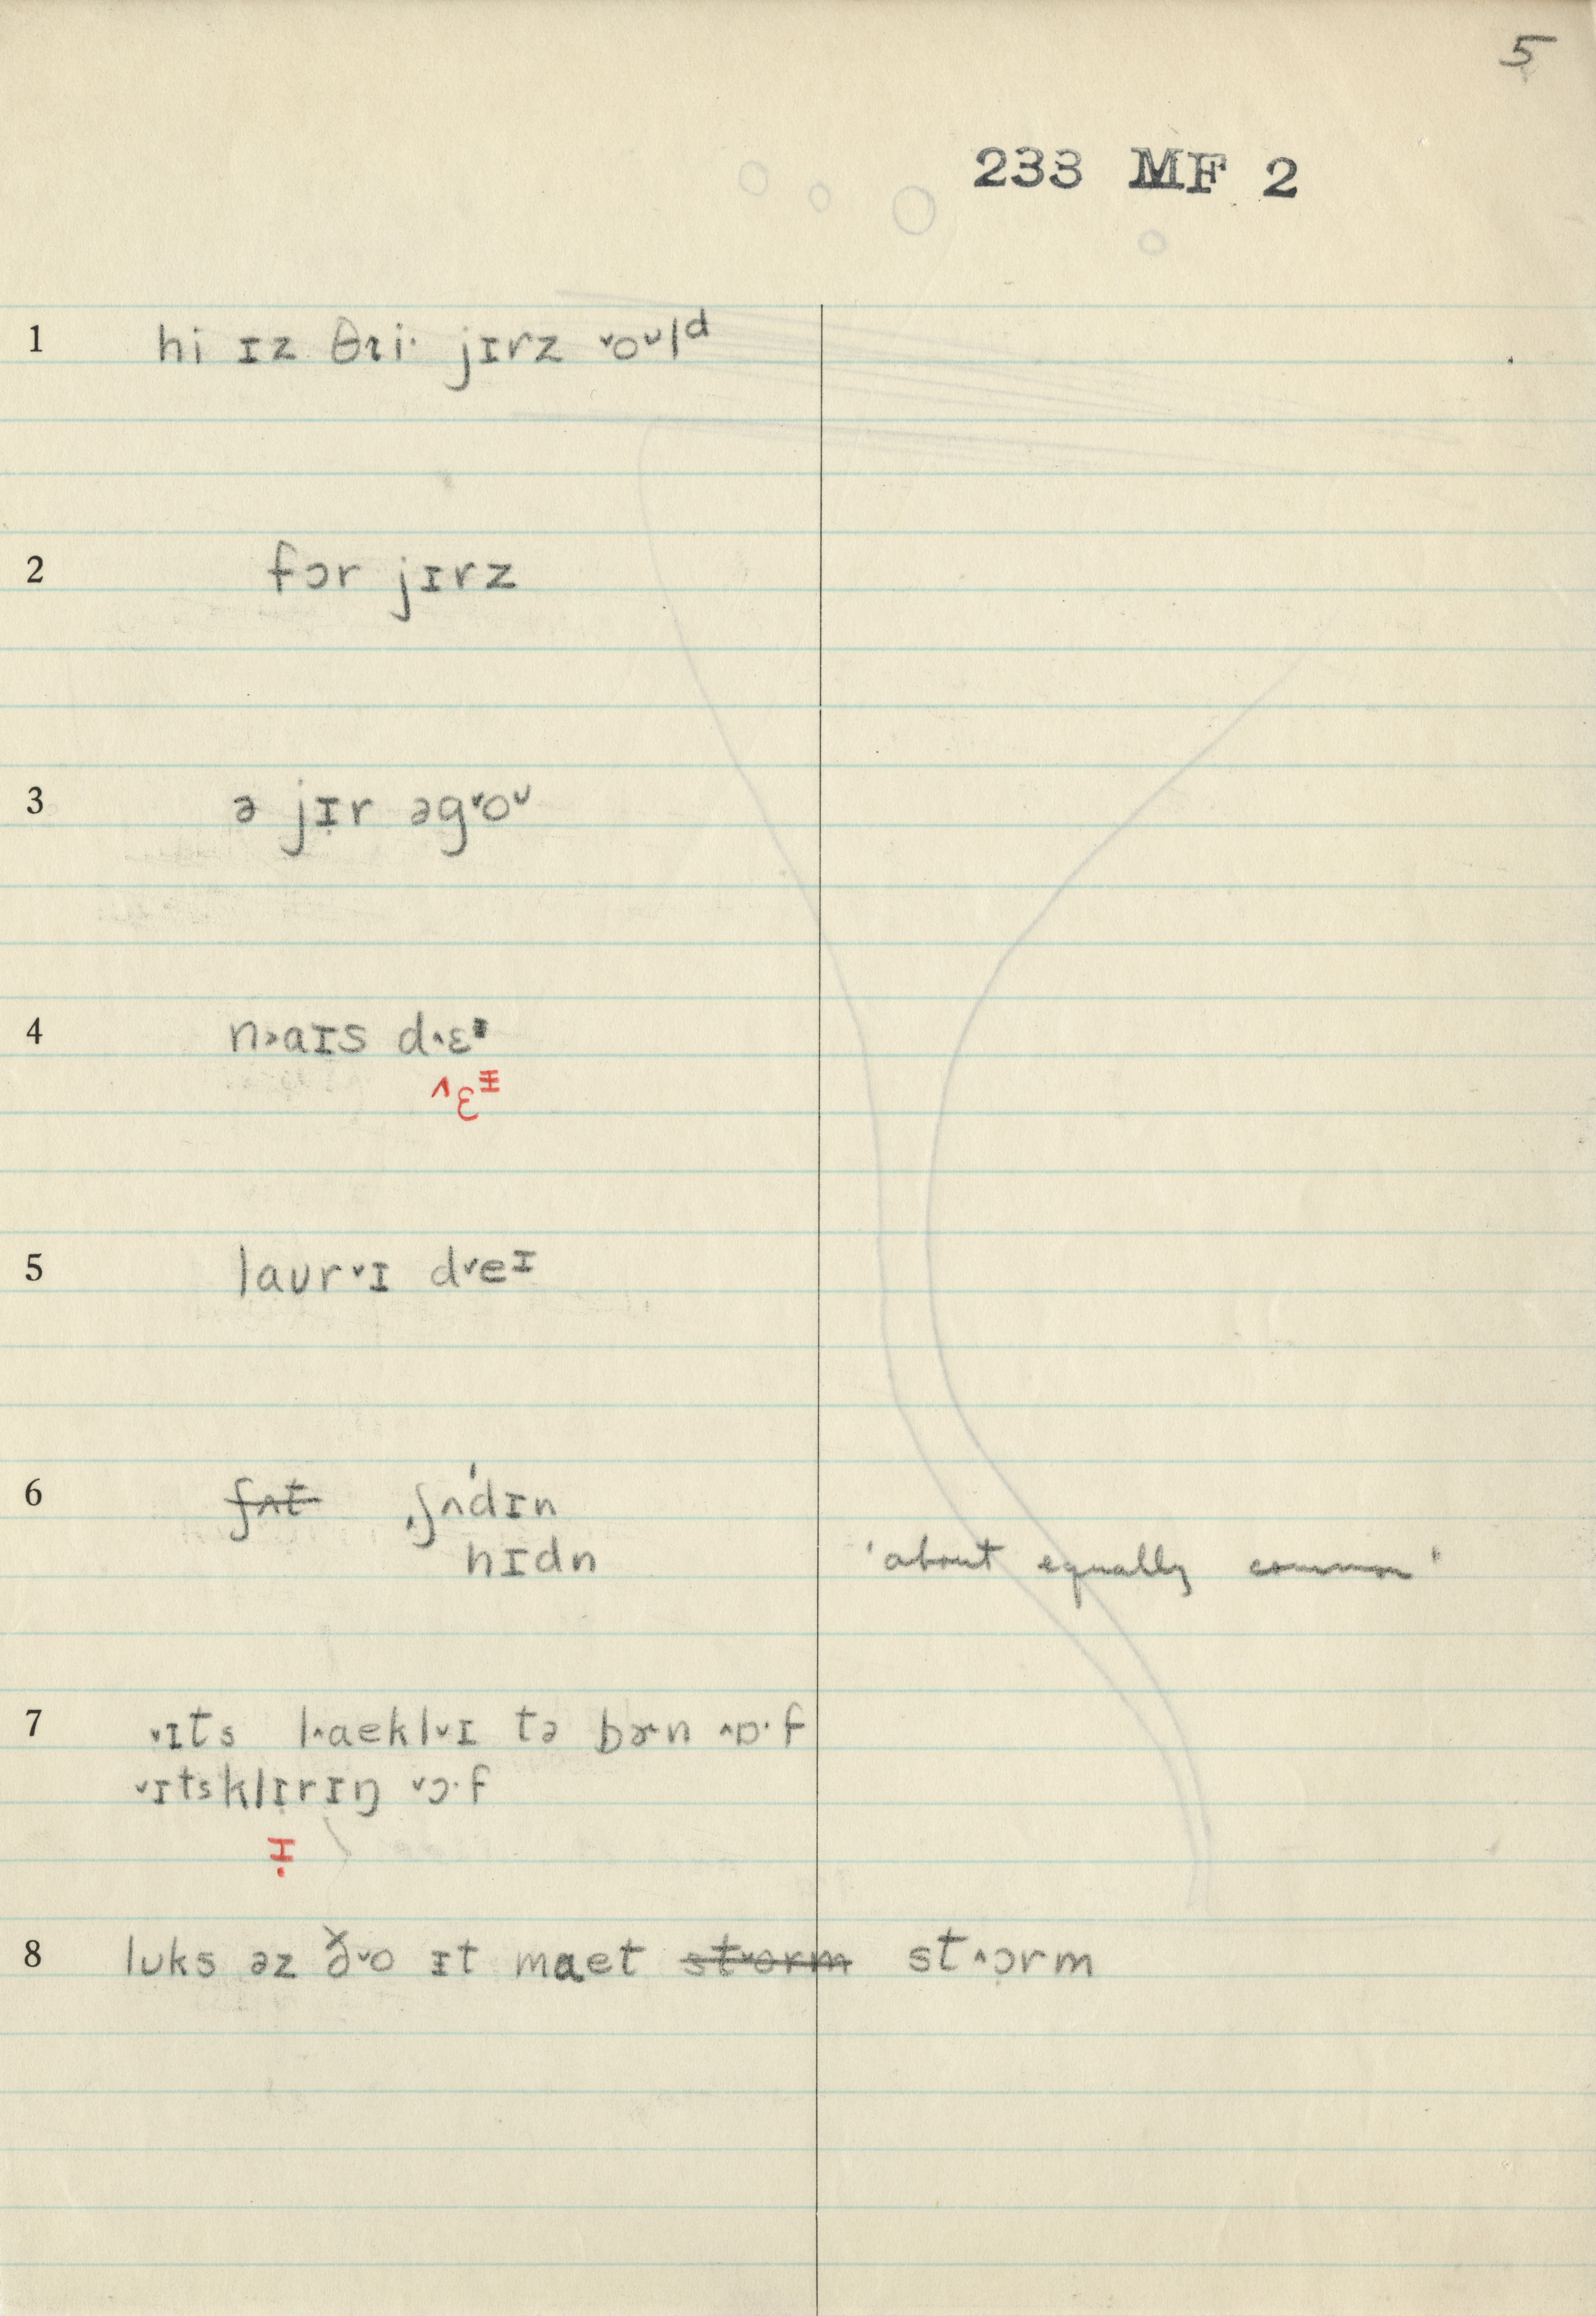 5
233 MF 2
1 hi ɪz θɹi· jɪrz ˅oᴜld
2 fɔr jɪrz
3 ə jɪr əg˅oᴜ
4 n˃aɪs d˄ɛᶧ
˄ɛᶧ
5 laʊr˅ɪ d˅eᶦ
6 ʃʌt ˌʃʌ'dɪn
hɪdn 'about equally common'
7 ˅ɪts l˄aekl˅ɪ tə bɚn ˄ɒ·f
˅ɪtsklɪrɪŋ ˅ɔ·f
ɪ̣
8 lʊks əz ð˅o ɪt maet st˅orm st˄ɔrm